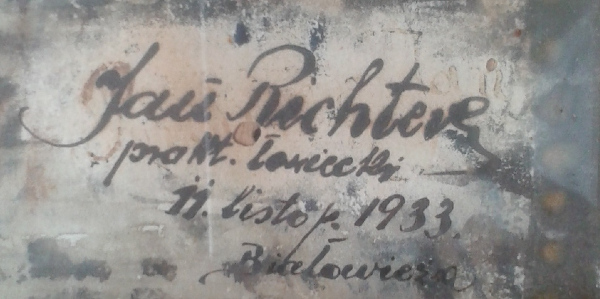 Jan Richter
prakt. Łowiecki
11. listop. 1933.
Białowieża